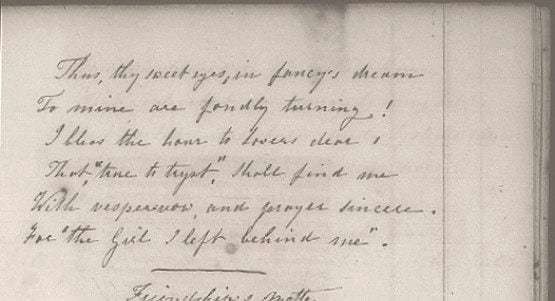 Thus, thy sweet eyes, in fancy's dream
To mine are fondly turning!
I bless the hour to lovers dear,
That, "true to tryst", shall find me
With vesper vow, and prayer sincere.
For "the Girl I left behind me".
Friendship's Motto